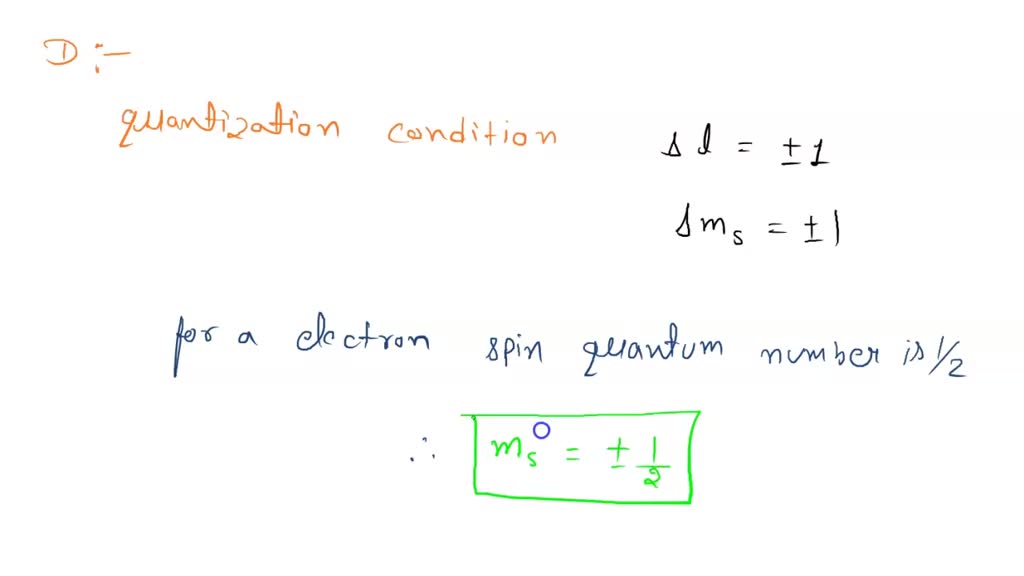 D :-
quantization condition
Δl = ±1
Δm_s = ±1
for a electron spin quantum number is 1/2
∴ m_s = ± 1/2